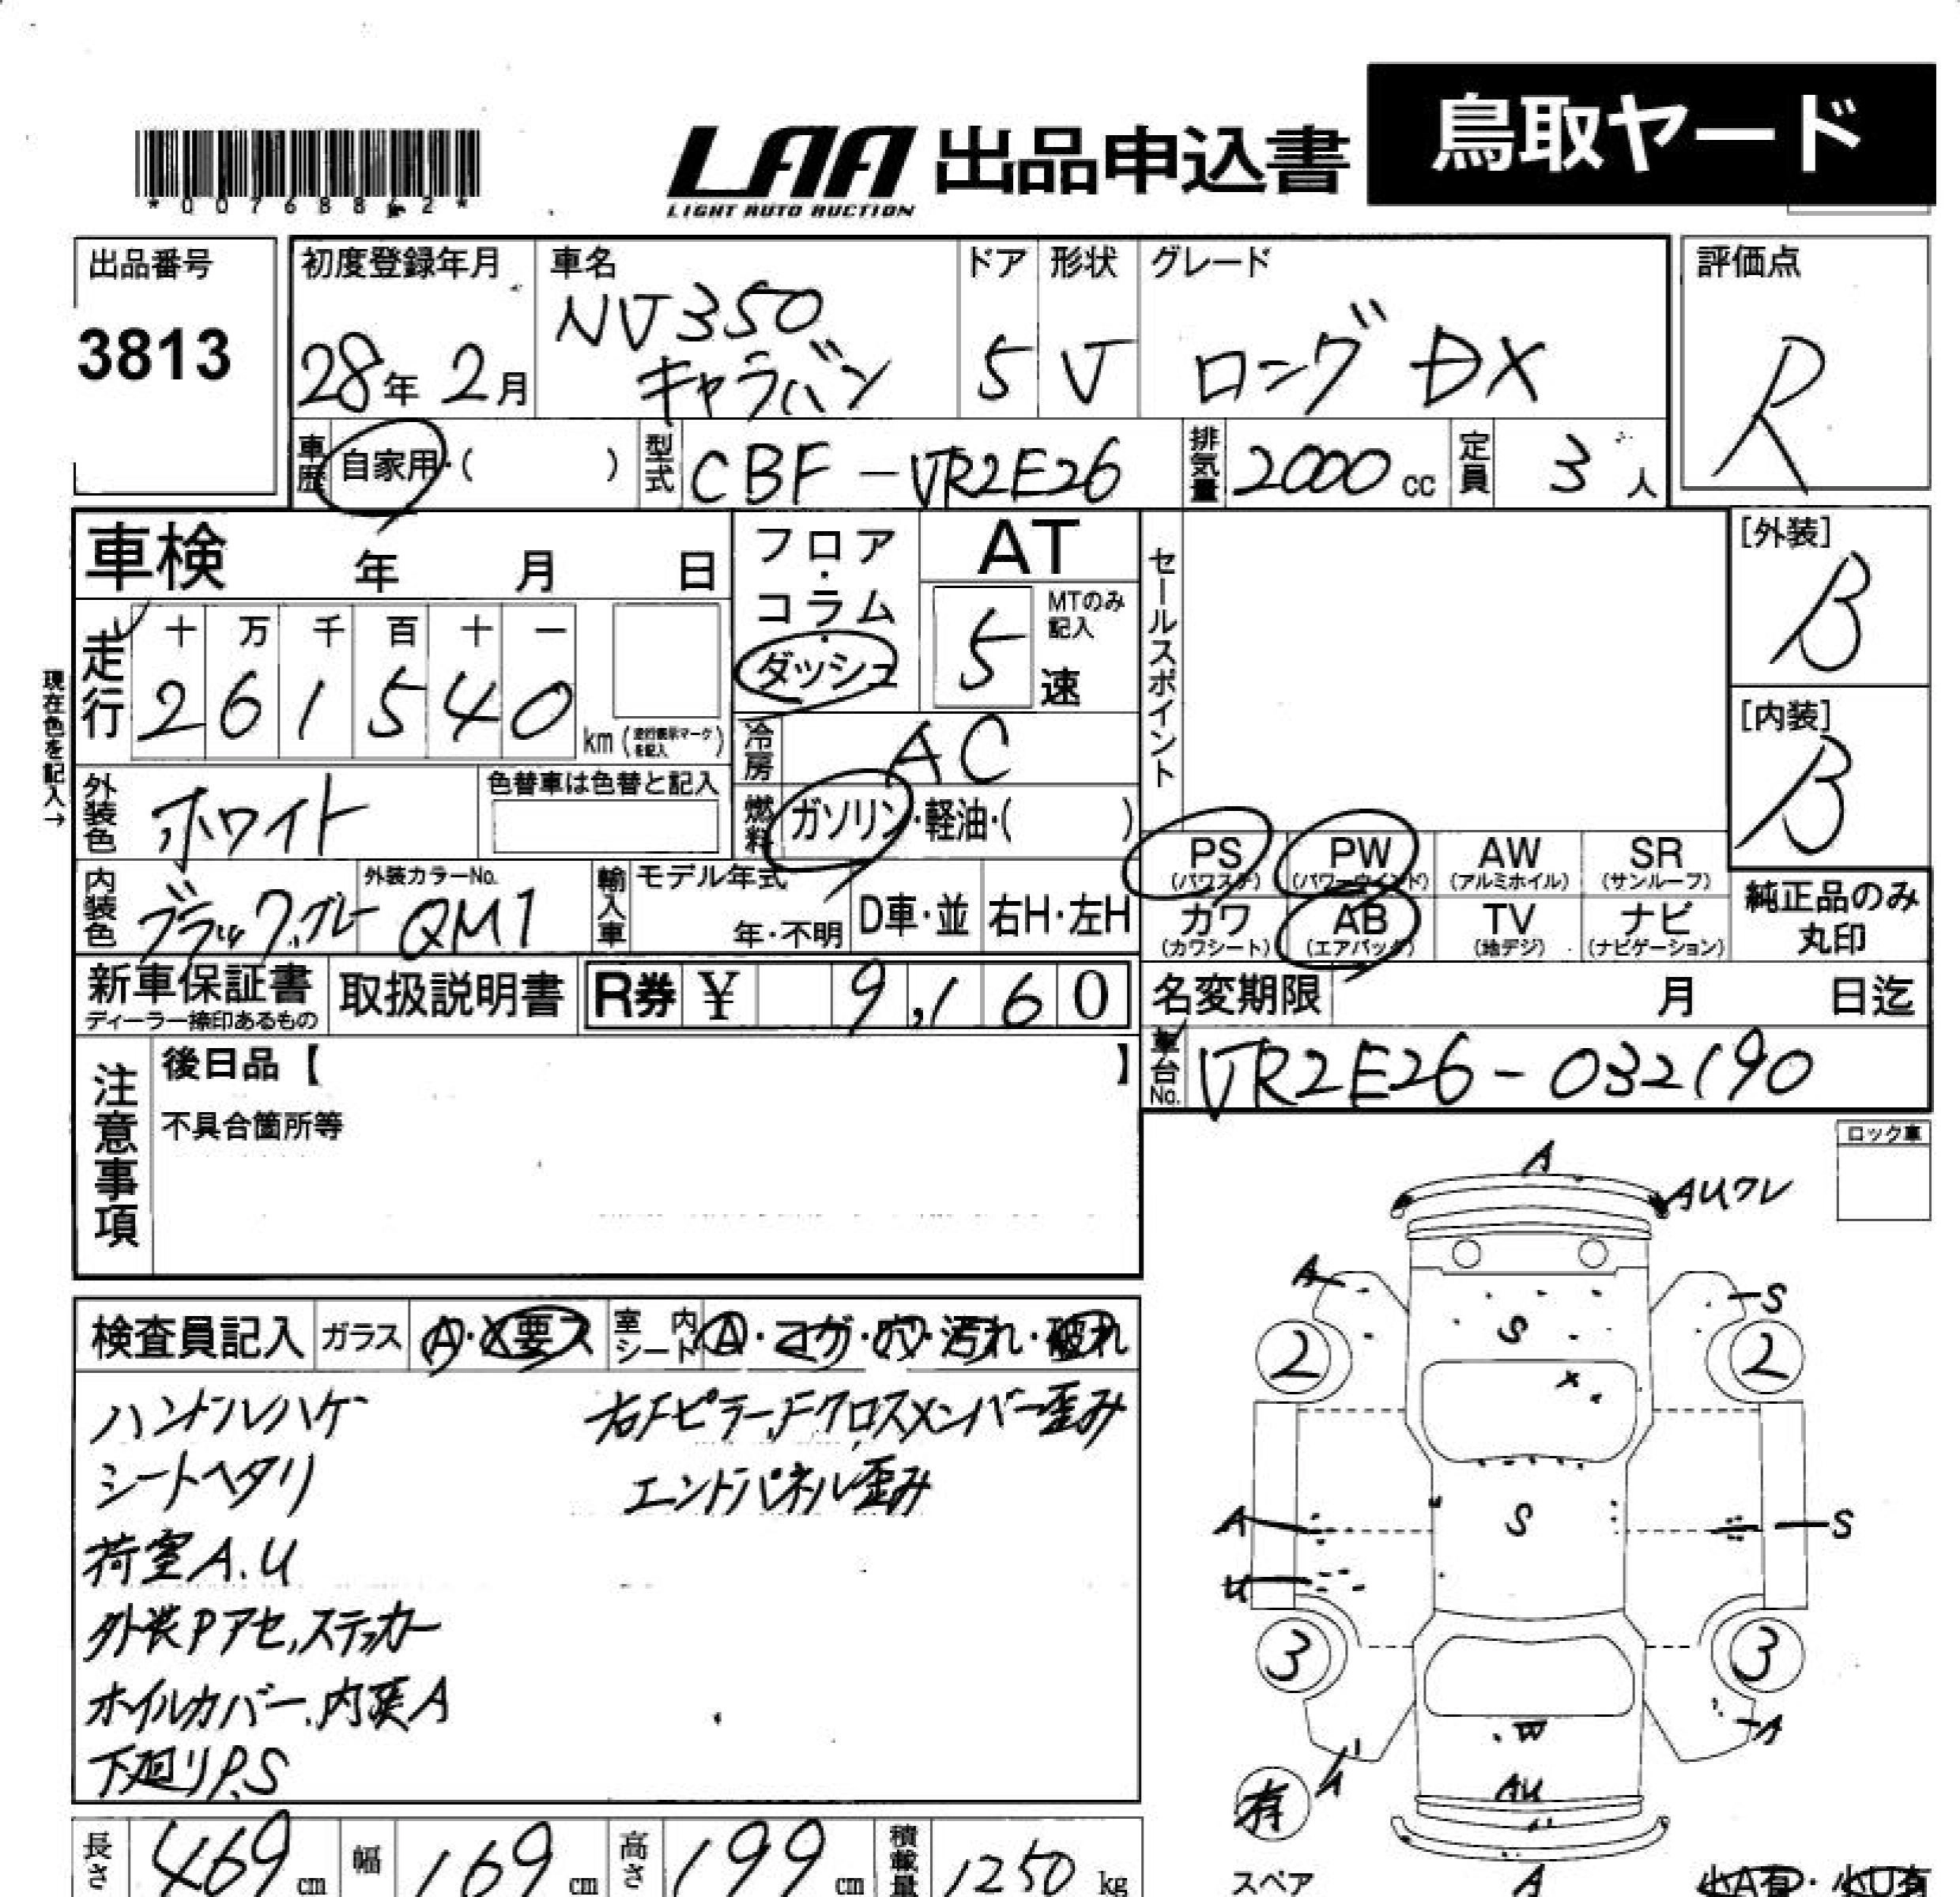 鳥取ヤード
LAA 出品申込書
LIGHT AUTO AUCTION
*00768862*
出品番号
3813
初度登録年月
28年 2月
車名
NV350
キャラバン
ドア
5
形状
V
グレード
ロング DX
評価点
R
車歴
自家用・( )
型式
CBF-VR2E26
排気量
2000 cc
定員
3 人
車検 年 月 日
フロア・コラム・ダッシュ
AT
5
MTのみ記入
速
セールスポイント
[外装]
B
[内装]
B
走行
十 万 千 百 十 一
2 6 1 5 4 0
km (走行表示マークを記入)
現在色を記入→
冷房
AC
外装色
ホワイト
色替車は色替と記入
燃料
ガソリン・軽油・( )
内装色
ブラック.グレー
外装カラーNo.
QM1
輸入車
モデル年式
年・不明
D車・並
右H・左H
PS
(パワステ)
PW
(パワーウインド)
AW
(アルミホイル)
SR
(サンルーフ)
カワ
(カワシート)
AB
(エアバック)
TV
(地デジ)
ナビ
(ナビゲーション)
純正品のみ
丸印
新車保証書
ディーラー捺印あるもの
取扱説明書
R券 ¥ 9,160
名変期限 月 日迄
車台No.
VR2E26-032190
注意事項
後日品【 】
不具合箇所等
ロック車
検査員記入
ガラス
A・X要ス
室内シート
A・コゲ・穴・汚れ・破れ
ハンドルハゲ
右Fピラー,Fクロスメンバー歪み
シートヘタリ
エンドパネル歪み
荷室A.U
外装Pアセ,ステッカー
ホイルカバー.内張A
下廻りP.S
A
AUワレ
A
S
S
2
2
X
A
S
S
U
3
3
W
A
A
AU
有
スペア
A
小A有・小U有
長さ
469 cm
幅
169 cm
高さ
199 cm
積載量
1250 kg